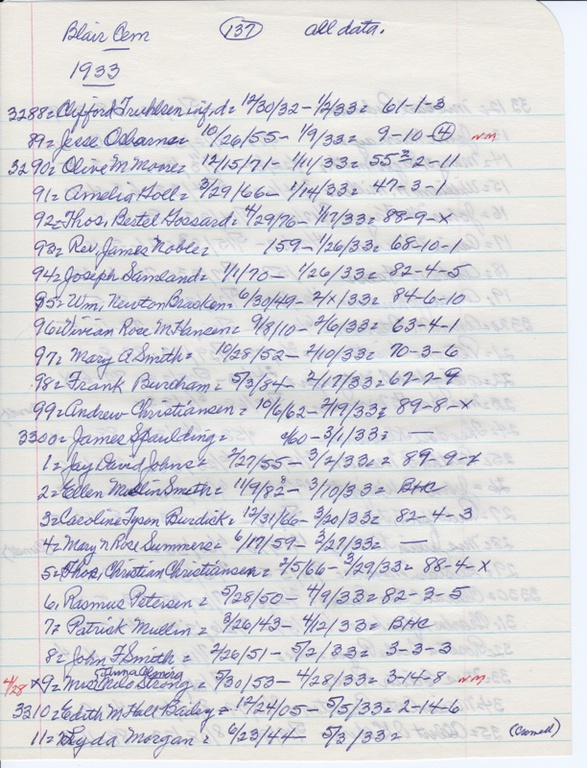 Blair Cem 137 all data.
1933
3288= Clifford Truhlsen inf.d= 12/30/32- 1/2/33= 61-1-3
89= Jesse Osborne= 10/26/55- 1/9/33= 9-10-4 nm
3290= Olive M Moore= 12/15/71- 1/11/33= 55-2-11
91= Amelia Holl= 3/29/66- 1/14/33= 47-3-1
92= Thos. Bertel Gossard= 4/29/76- 1/17/33= 88-9-x
93= Rev. James Noble= 159- 1/26/33= 68-10-1
94= Joseph Samland= 1/1/70- 1/26/33= 82-4-5
95= Wm. Newton Bracken= 6/30/49- 2/x/33= 84-6-10
96= Vivian Rose McHansen= 9/8/10- 2/6/33= 63-4-1
97= Mary A Smith= 10/28/52- 2/10/33= 70-3-6
98= Frank Burcham= 5/3/84- 2/17/33= 67-2-9
99= Andrew Christiansen= 10/6/62- 2/19/33= 89-8-x
3300= James Spaulding= c/60- 3/1/33= —
1= Jay David Johns= 2/27/55- 3/2/33= 89-9-x
2= Ellen Mullin Smith= 11/9/82- 3/10/33= BHC
3= Caroline Tyson Burdick= 12/31/66- 3/20/33= 82-4-3
4= Mary N Rose Summers= 6/17/59- 3/27/33= —
5= Thos. Christian Christiansen= 2/5/66- 3/29/33= 88-4-x
6= Rasmus Petersen= 5/28/50- 4/9/33= 82-3-5
7= Patrick Mullin= 3/26/43- 4/12/33= BHC
8= John F Smith= 2/26/51- 5/2/33= 3-3-3
4/28 x9= Milo Strong= 5/30/53- 4/28/33= 3-14-8 nm
3310= Edith M Hall Bailey= 12/24/05- 5/5/33= 2-14-6
11= Lyda Morgan= 6/23/44 5/3/33=